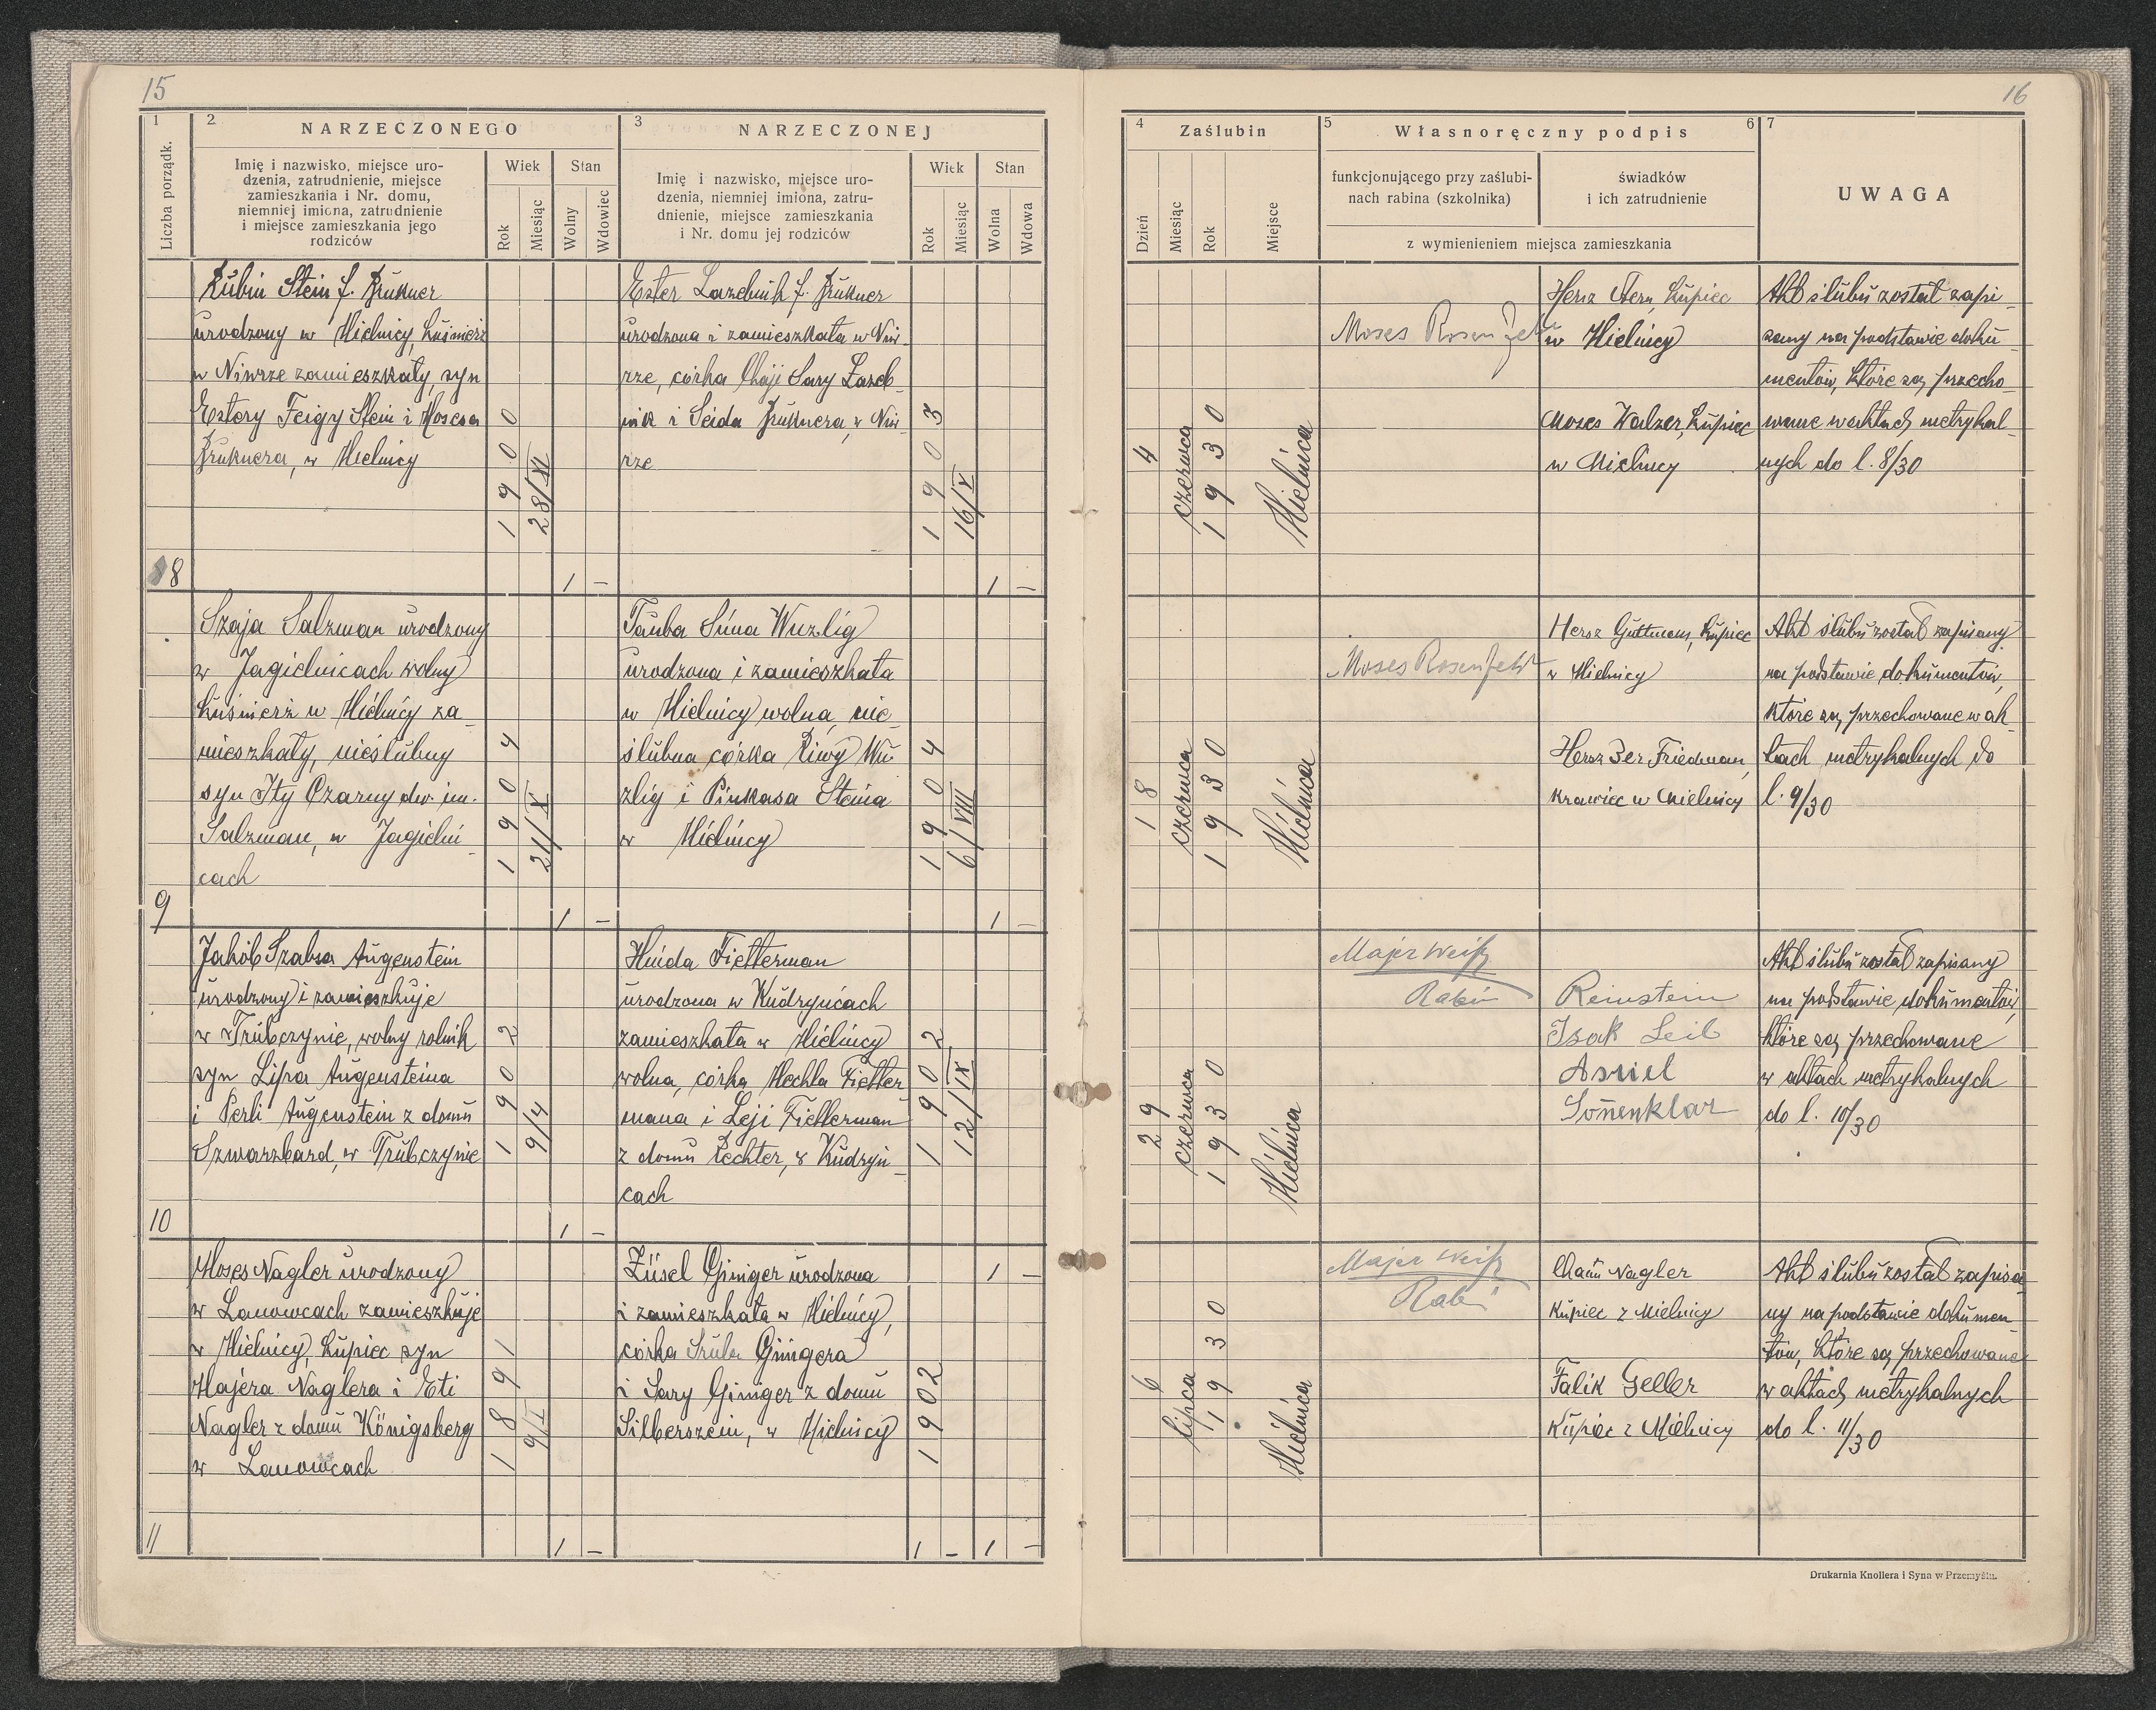 15
1
2
NARZECZONEGO
3
NARZECZONEJ
Liczba porządk.
Imię i nazwisko, miejsce uro-
dzenia, zatrudnienie, miejsce
zamieszkania i Nr. domu,
niemniej imiona, zatrudnienie
i miejsce zamieszkania jego
rodziców
Wiek
Stan
Rok
Miesiąc
Wolny
Wdowiec
Imię i nazwisko, miejsce uro-
dzenia, niemniej imiona, zatru-
dnienie, miejsce zamieszkania
i Nr. domu jej rodziców
Wiek
Stan
Rok
Miesiąc
Wolna
Wdowa
8
Rubin Stein f. Brukner
urodzony w Mielnicy, kuśnierz
w Niwrze zamieszkały, syn
Estery Feigy Stein i Mosesa
Bruknera, w Mielnicy
1900
28/XI
1 –
Ester Lazebnik f. Brukner
urodzona i zamieszkała w Niw-
rze, córka Chaji Sary Lazeb-
nik i Seida Bruknera, w Niw-
rze
1903
16/X
1 –
9
Szaja Salzman urodzony
w Jagielnicach wolny
kuśnierz w Mielnicy za-
mieszkały, nieślubny
syn Ity Czarny dw. im.
Salzman, w Jagielni-
cach
1904
21/X
1 –
Tauba Sima Wuzlig
urodzona i zamieszkała
w Mielnicy wolna, nie-
ślubna córka Riwy Wu-
zlig i Pinkasa Steina
w Mielnicy
1904
6/VIII
1 –
10
Jakób Szabsa Augenstein
urodzony i zamieszkuje
w Trubczynie, wolny rolnik
syn Lipa Augensteina
i Perli Augenstein z domu
Szwarzbard, w Trubczynie
1902
9/4
1 –
Hinda Fietterman
urodzona w Kudryńcach
zamieszkała w Mielnicy
wolna, córka Mechla Fietter
mana i Leji Fietterman
z domu Rechter, w Kudryń-
cach
1902
12/IX
1 –
11
Moses Nagler urodzony
w Lanowcach zamieszkuje
w Mielnicy, kupiec syn
Majera Naglera i Eti
Nagler z domu Königsberg
w Lanowcach
1891
9/I
1 –
Züsel Giniger urodzona
i zamieszkała w Mielnicy,
córka Srula Ginigera
i Sary Giniger z domu
Silberszein, w Mielnicy
1902
1 – 1 –
16
4
Zaślubin
5
Własnoręczny podpis
6
7
Dzień
Miesiąc
Rok
Miejsce
funkcjonującego przy zaślubi-
nach rabina (szkolnika)
świadków
i ich zatrudnienie
z wymienieniem miejsca zamieszkania
UWAGA
4
czerwca
1930
Mielnica
Moses Rosenfeld
Hersz Stern, kupiec
w Mielnicy
Moses Walzer, kupiec
w Mielnicy
Akt ślubu został zapi-
sany na podstawie doku-
mentów, które są przecho-
wane w aktach metrykal-
nych do l. 8/30
18
czerwca
1930
Mielnica
Moses Rosenfeld
Hersz Guttman, kupiec
w Mielnicy
Hersz Ber Friedman,
krawiec w Mielnicy
Akt ślubu został zapisany
na podstawie dokumentów,
które są przechowane w ak-
tach metrykalnych do
l. 9/30
29
czerwca
1930
Mielnica
Majer Weiss
Rabin
Reinstein
Isak Leib
Asriel
Sonenklar
Akt ślubu został zapisany
na podstawie dokumentów,
które są przechowane
w aktach metrykalnych
do l. 10/30
6
lipca
1930
Mielnica
Majer Weiss
Rabin
Chaim Nagler
kupiec z Mielnicy
Falik Geller
kupiec z Mielnicy
Akt ślubu został zapisa-
ny na podstawie dokumen-
tów, które są przechowane
w aktach metrykalnych
do l. 11/30
Drukarnia Knollera i Syna w Przemyślu.